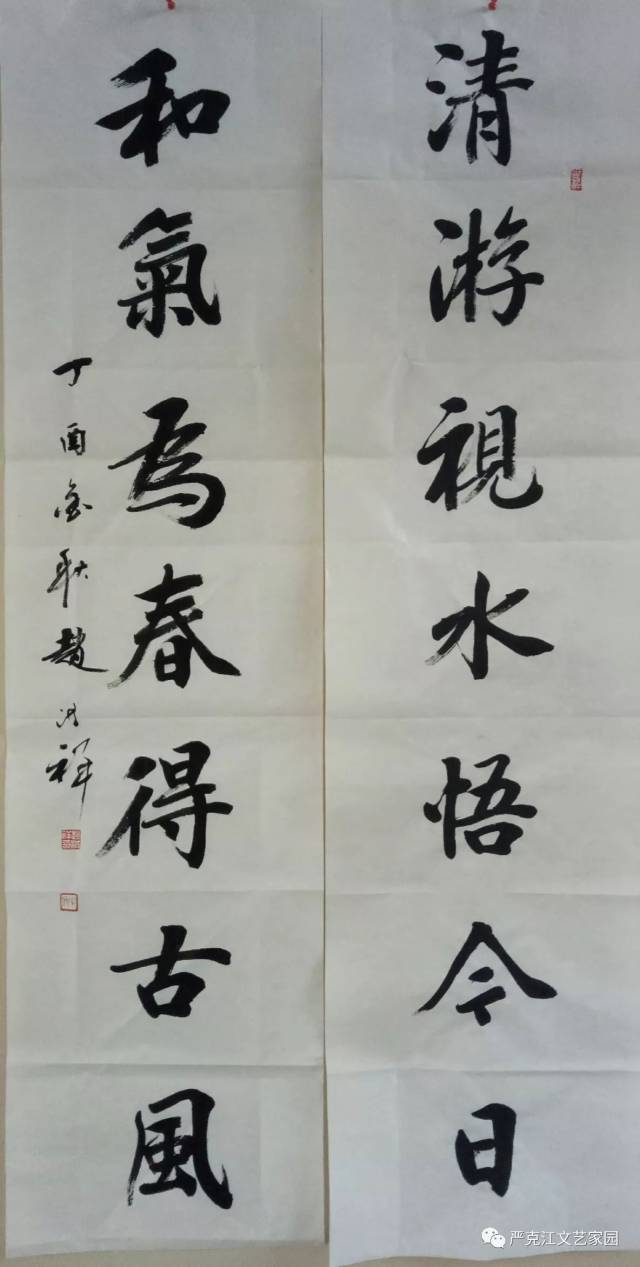 清游視水悟今日
和氣為春得古風
丁酉金秋趙洪祥
严克江文艺家园